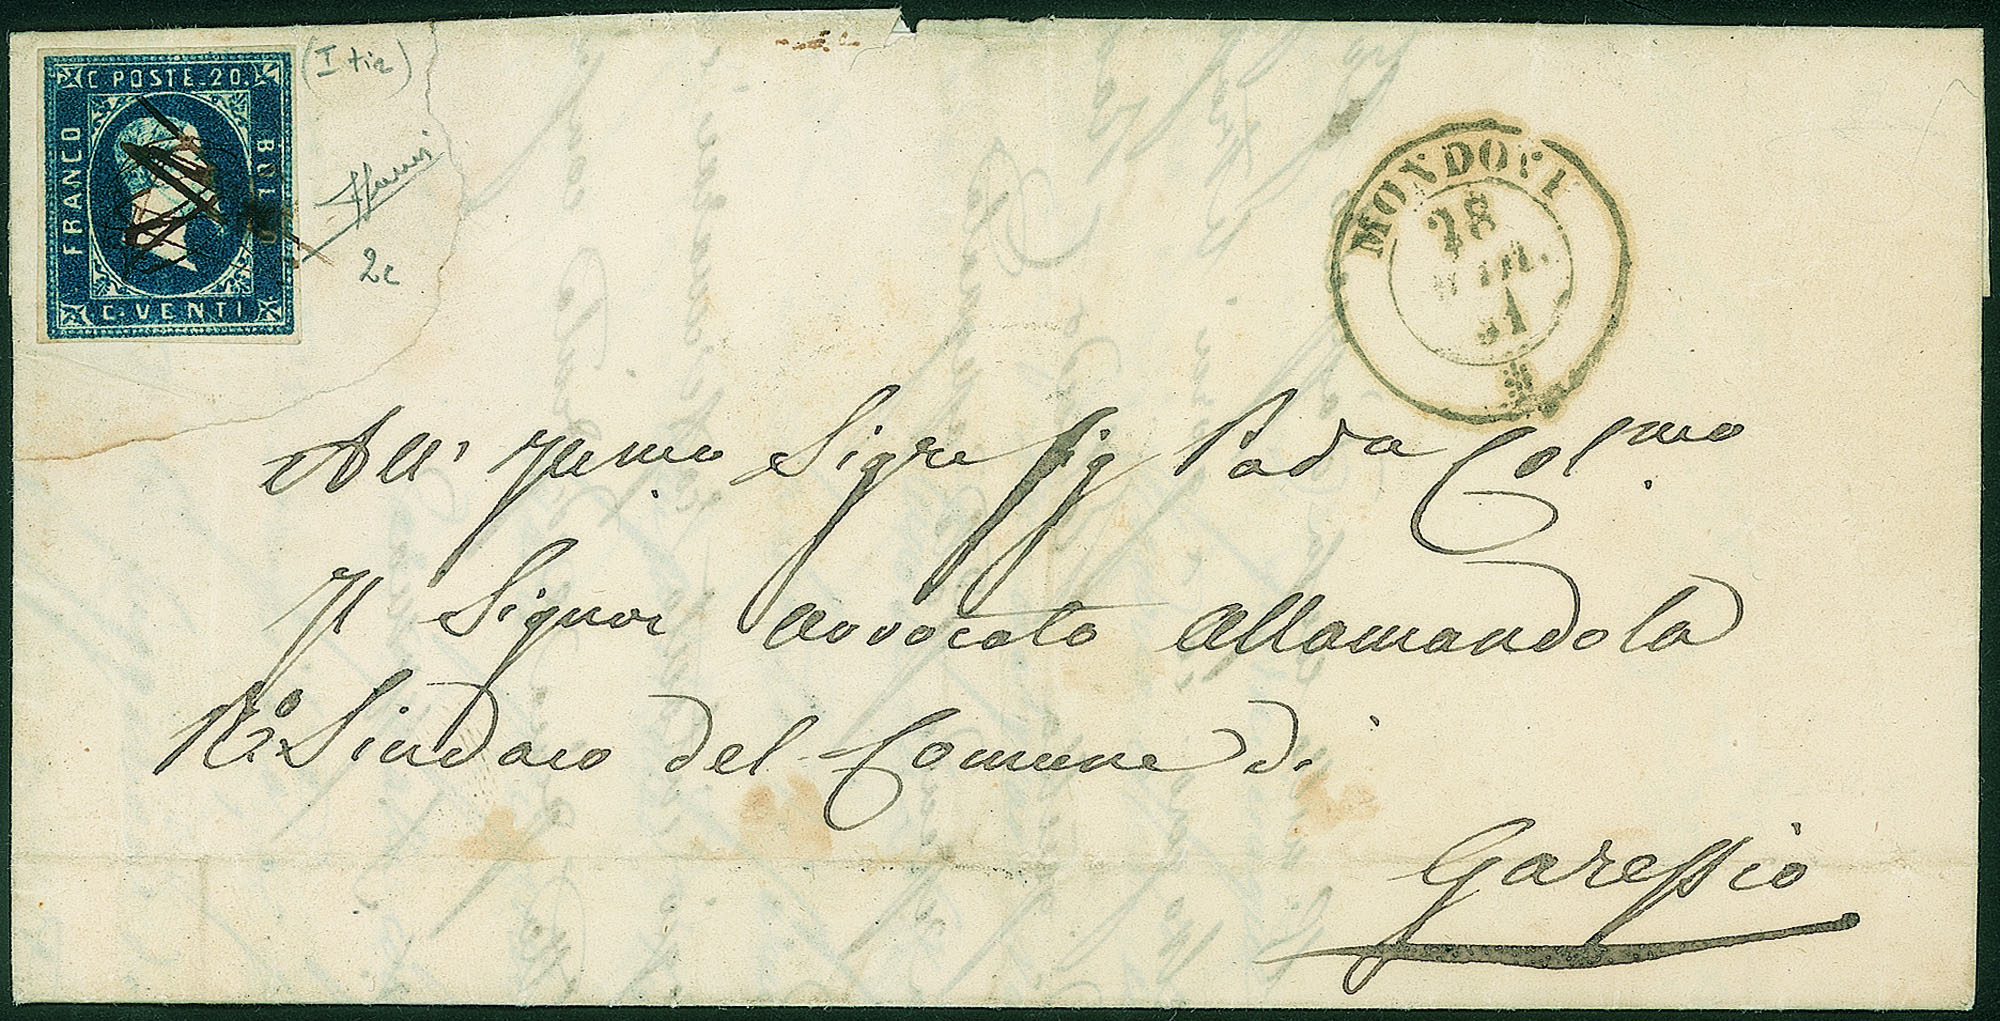 C. POSTE. 20.
FRANCO
BOLLO
C. VENTI
(I tir)
2c
MONDOVI
28
51
All' Illmo Sigre Sig Pad Colmo
Il Signor Avvocato Allamandola
Sindaco del Comune di
Garessio